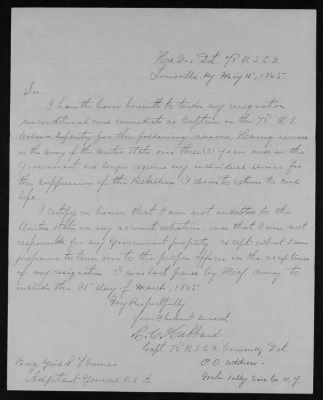 Hd Qrs. Det. 72d U.S.C.I.
Louisville, Ky May 11, 1865.
Sir
I have the honor herewith to tender my resignation
unconditional and immediate as Captain in the 72d U.S.
Colored Infantry for the following reasons. Having served
in the Army of the United States over three (3) years and as the
Government no longer requires my individual services for
the suppression of the Rebellion I desire to return to civil
life.
I certify on honor that I am not indebted to the
United States on any account whatever, and that I am not
responsible for any Government property, except what I am
prepared to turn over to the proper officer on the acceptance
of my resignation. I was last paid by Maj. to
include the 31st day of March, 1865
Very Respectfully
Your Obedient Servant
C. Hubbard
Capt 72d U.S.C.I. Comm'dg Det.
Brig Gen'l L Thomas
Adjutant General U.S.A.
P.O. address -
Valley, Co. N.Y.